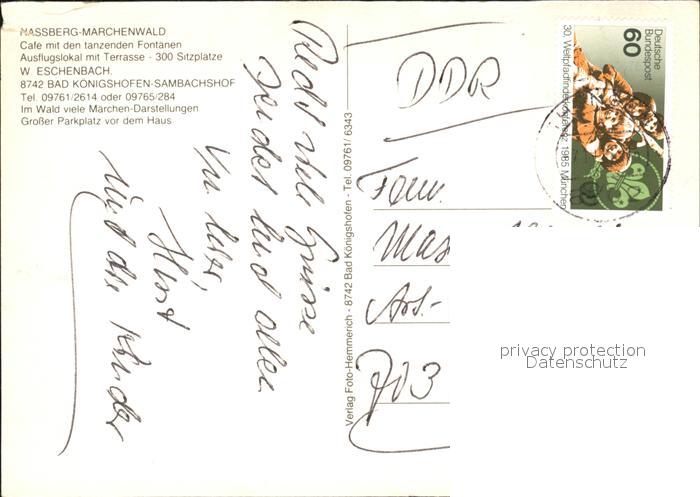 NASSBERG-MÄRCHENWALD
Cafe mit den tanzenden Fontänen
Ausflugslokal mit Terrasse - 300 Sitzplätze
W. ESCHENBACH.
8742 BAD KÖNIGSHOFEN-SAMBACHSHOF
Tel. 09761/2614 oder 09765/284
Im Wald viele Märchen-Darstellungen
Großer Parkplatz vor dem Haus
Recht viele Grüsse
sendet Euch allen
In Liebe,
Horst
und die Kinder
Verlag Foto-Hemmerich - 8742 Bad Königshofen - Tel. 09761/ 6343
DDR
Fam.
703
Deutsche
Bundespost
60
30. Weltpfadfinderkonferenz 1985 München
privacy protection
Datenschutz